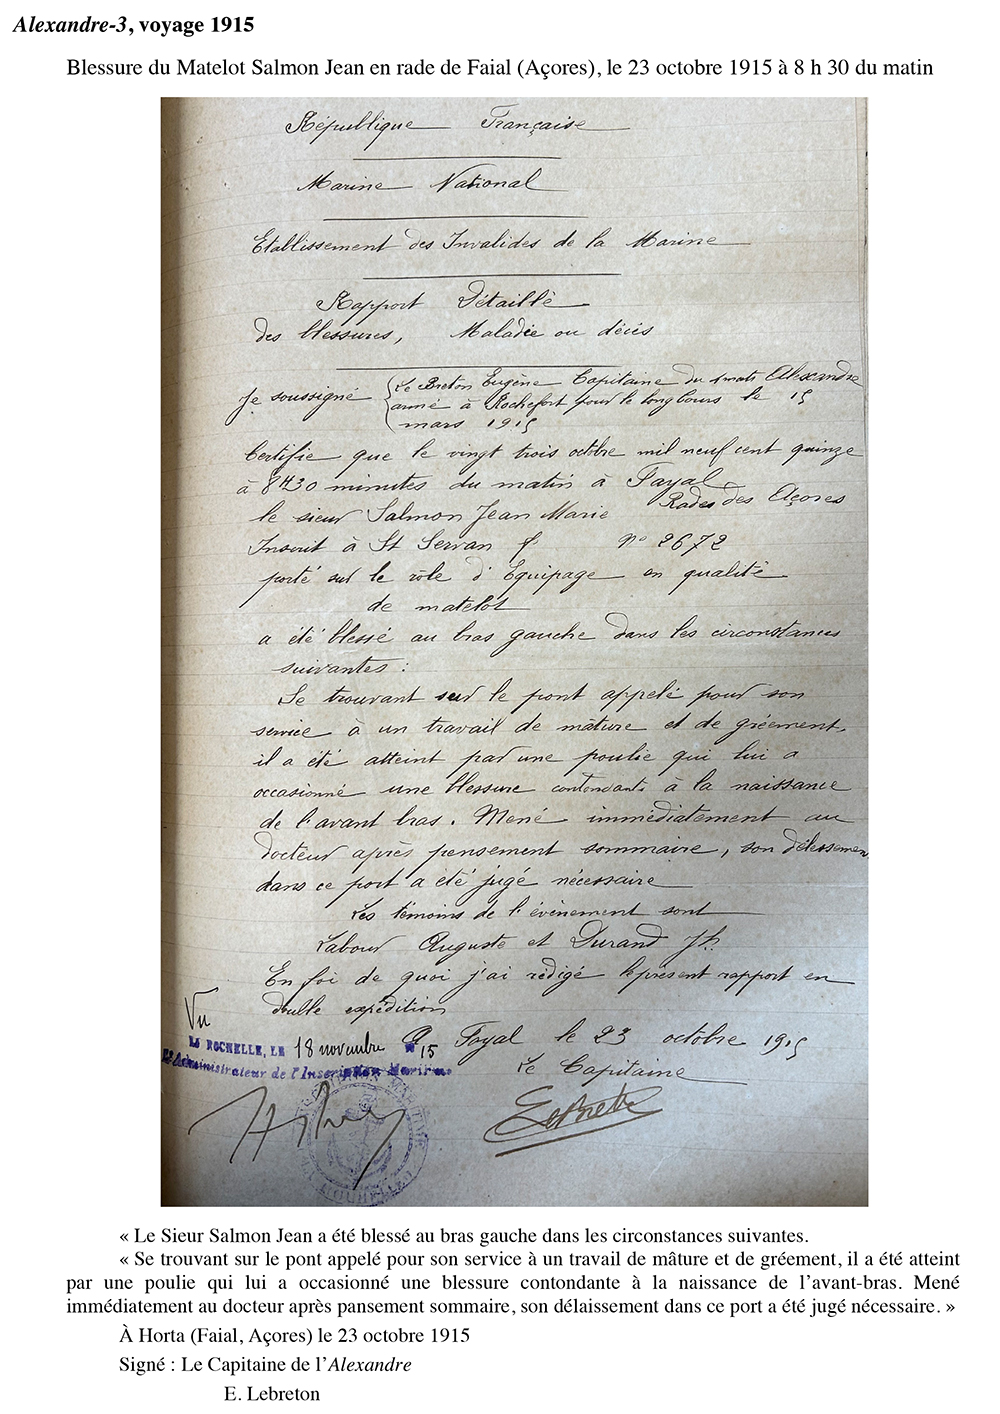 Alexandre-3, voyage 1915
Blessure du Matelot Salmon Jean en rade de Faial (Açores), le 23 octobre 1915 à 8 h 30 du matin
République Française
Marine National
Etablissement des Invalides de la Marine
Rapport Détaillé
des blessures, Maladie ou décès
Je soussigné
Le Breton Eugène Capitaine du 4 mats Alexandre
armé à Rochefort pour le long cours le 15
mars 1915
Certifie que le vingt trois octobre mil neuf cent quinze
à 8H30 minutes du matin à Fayal
Rades des Açores
le sieur Salmon Jean Marie
Inscrit à St Servan f° n° 2672
porté sur le rôle d'Equipage en qualité
de matelot
a été blessé au bras gauche dans les circonstances
suivantes :
Se trouvant sur le pont appelé pour son
service à un travail de mâture et de gréement,
il a été atteint par une poulie qui lui a
occasionné une blessure contondante à la naissance
de l'avant bras. Mené immédiatement au
docteur après pensement sommaire, son délessemen
dans ce port a été jugé nécessaire
Les témoins de l'évènement sont
Labour Auguste et Durand Jh.
En foi de quoi j'ai rédigé le présent rapport en
double expédition
Vu
LA ROCHELLE, LE 18 novembre 15
L'Administrateur de l'Inscription Maritime
A Fayal le 23 octobre 1915
Le Capitaine
LeBreton
« Le Sieur Salmon Jean a été blessé au bras gauche dans les circonstances suivantes.
« Se trouvant sur le pont appelé pour son service à un travail de mâture et de gréement, il a été atteint
par une poulie qui lui a occasionné une blessure contondante à la naissance de l'avant-bras. Mené
immédiatement au docteur après pansement sommaire, son délaissement dans ce port a été jugé nécessaire. »
À Horta (Faial, Açores) le 23 octobre 1915
Signé : Le Capitaine de l'Alexandre
E. Lebreton